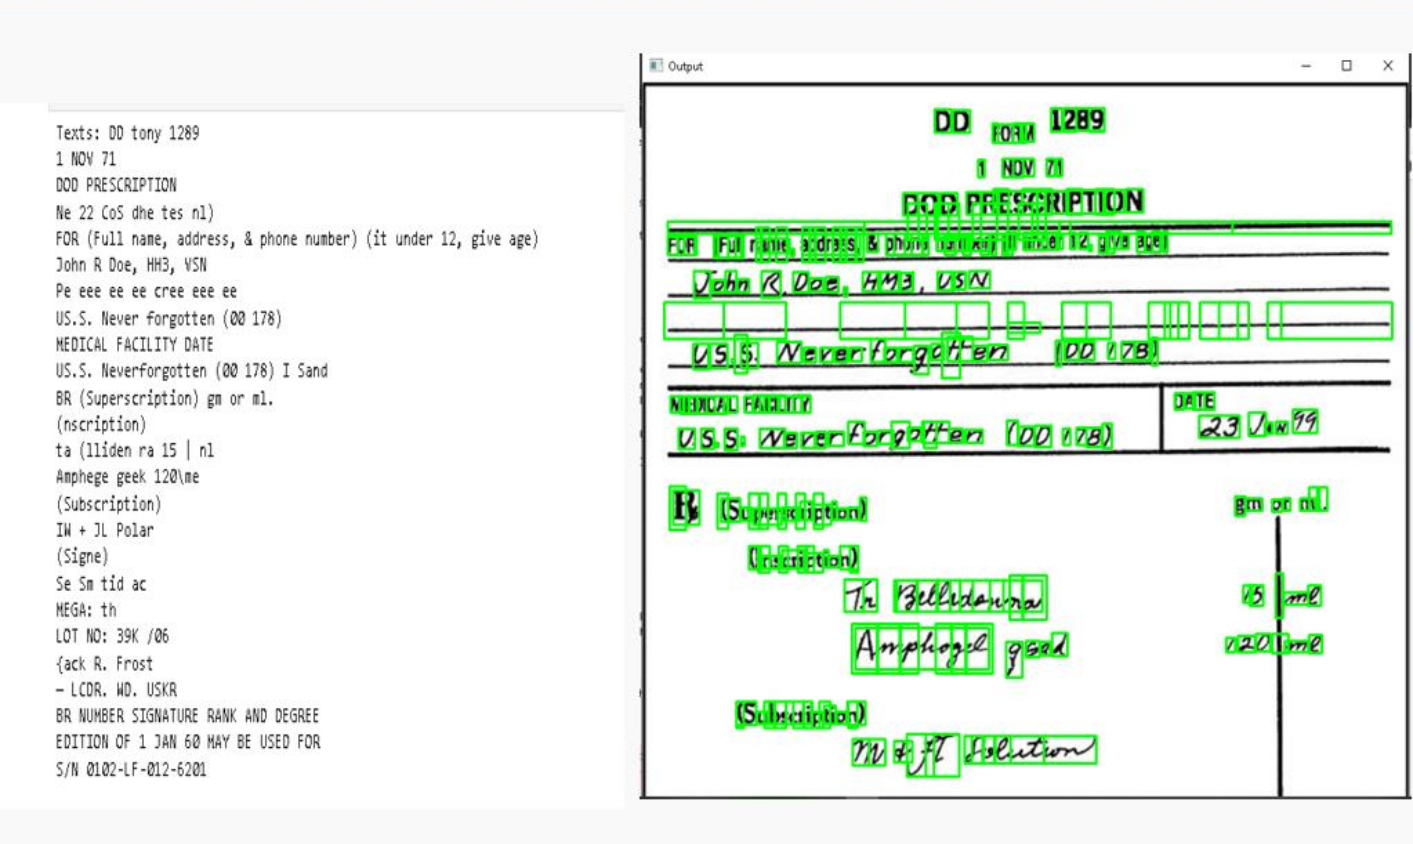 Texts: DD tony 1289
1 NOV 71
DOD PRESCRIPTION
Ne 22 CoS dhe tes nl)
FOR (Full name, address, & phone number) (it under 12, give age)
John R Doe, HH3, VSN
Pe eee ee ee cree eee ee
US.S. Never forgotten (00 178)
MEDICAL FACILITY DATE
US.S. Neverforgotten (00 178) I Sand
BR (Superscription) gm or ml.
(nscription)
ta (lliden ra 15 | nl
Amphege geek 120\me
(Subscription)
IW + JL Polar
(Signe)
Se Sm tid ac
MEGA: th
LOT NO: 39K /06
{ack R. Frost
— LCDR. WD. USKR
BR NUMBER SIGNATURE RANK AND DEGREE
EDITION OF 1 JAN 60 MAY BE USED FOR
S/N 0102-LF-012-6201
Output
DD FORM 1289
1 NOV 71
DOD PRESCRIPTION
FOR (Full name, address, & phone number) (If under 12, give age)
John R. Doe, HM3, USN
U.S.S. Neverforgotten (DD 178)
MEDICAL FACILITY DATE
U.S.S. Neverforgotten (DD 178) 23 Jan 99
℞ (Superscription) gm or ml.
(Inscription)
Tr Belladonna 15 ml
Amphogel qsad 120 ml
(Subscription)
M & FT Solution